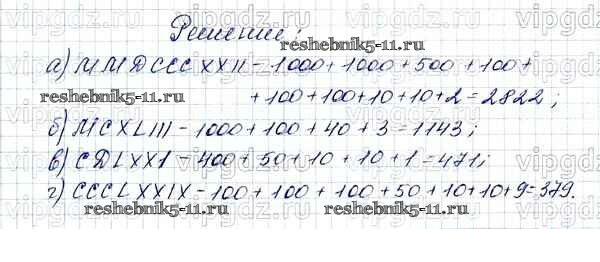 Решение:
reshebnik5-11.ru
а) MMDCCCXXII - 1000 + 1000 + 500 + 100 +
reshebnik5-11.ru
+ 100 + 100 + 10 + 10 + 2 = 2822;
б) MCXLIII - 1000 + 100 + 40 + 3 = 1143;
в) CDLXXI - 400 + 50 + 10 + 10 + 1 = 471;
г) CCCLXXIX - 100 + 100 + 100 + 50 + 10 + 10 + 9 = 379.
reshebnik5-11.ru
reshebnik5-11.ru